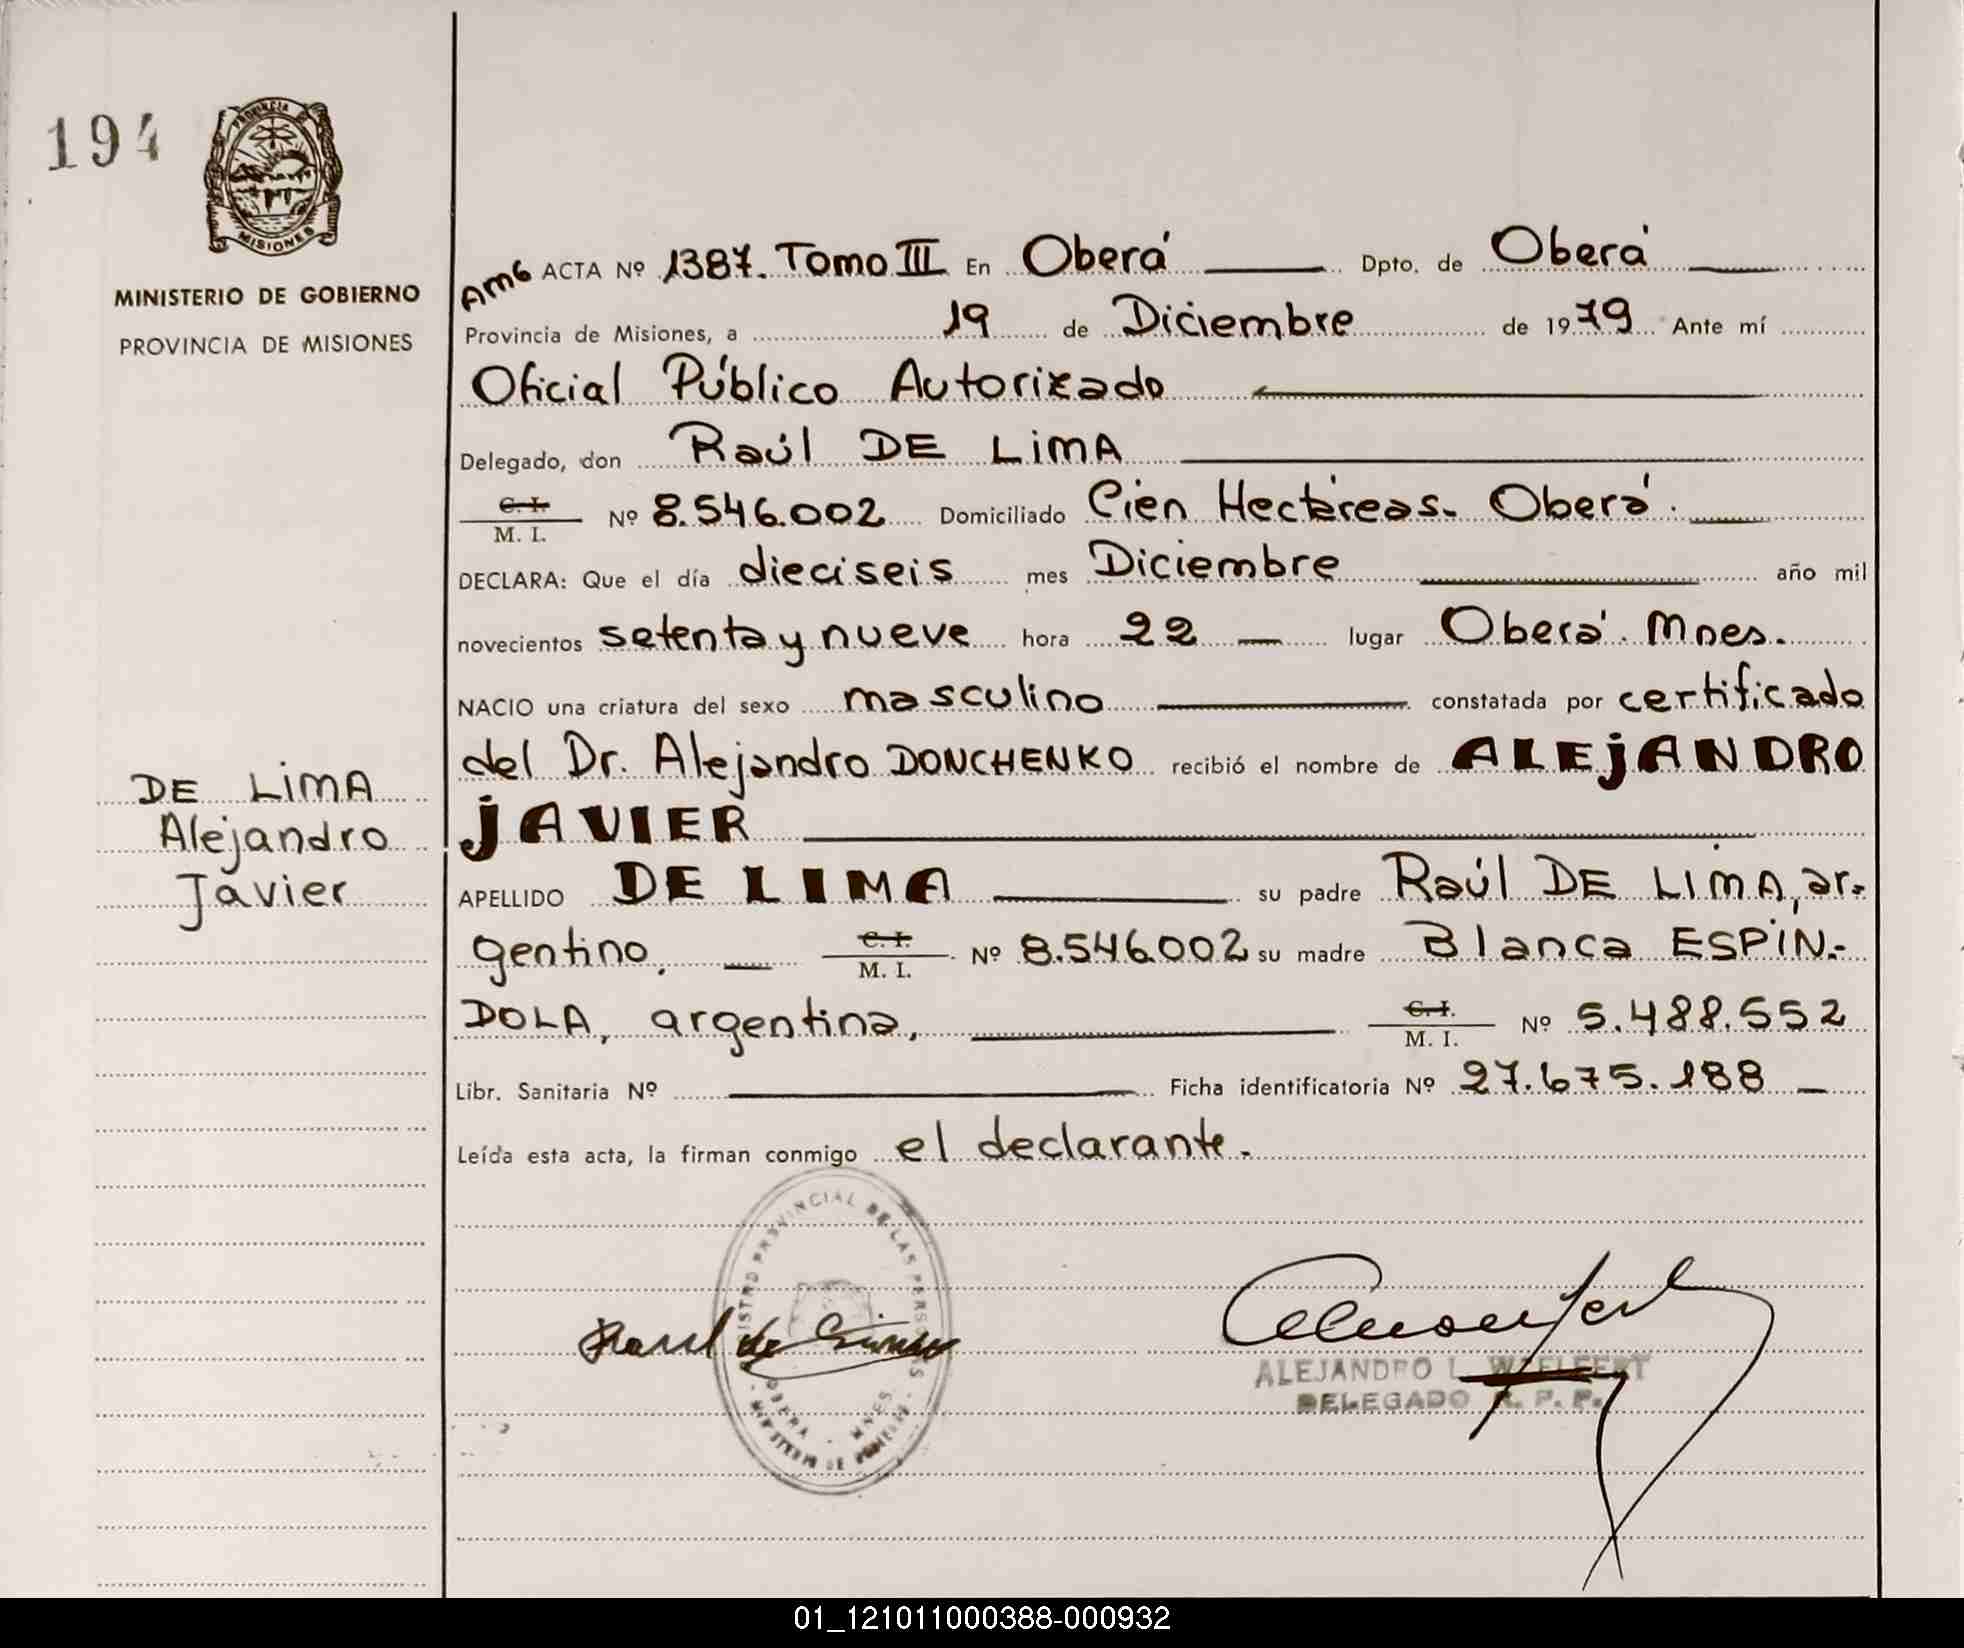 194
PROVINCIA DE
MISIONES
MINISTERIO DE GOBIERNO
PROVINCIA DE MISIONES
DE LIMA
Alejandro
Javier
AMG ACTA Nº 1387. Tomo III En Oberá Dpto. de Oberá
Provincia de Misiones, a 19 de Diciembre de 1979 Ante mí
Oficial Público Autorizado
Delegado, don Raúl DE LIMA
C. I. M. I. Nº 8.546.002 Domiciliado Cien Hectáreas. Oberá.
DECLARA: Que el día dieciseis mes Diciembre año mil
novecientos setenta y nueve hora 22 — lugar Oberá. Mnes.
NACIO una criatura del sexo masculino constatada por certificado
del Dr. Alejandro DONCHENKO recibió el nombre de ALEJANDRO
JAVIER
APELLIDO DE LIMA su padre Raúl DE LIMA, ar-
gentino, — C. I. M. I. Nº 8.546.002 su madre Blanca ESPÍN-
DOLA, argentina, C. I. M. I. Nº 5.488.552
Libr. Sanitaria Nº Ficha identificatoria Nº 27.675.188 —
Leída esta acta, la firman conmigo el declarante.
REGISTRO PROVINCIAL DE LAS PERSONAS
OBERA - MNES.
MINISTERIO DE GOBIERNO
Raul de Lima
ALEJANDRO L. WELFERT
DELEGADO R. P. P.
01_121011000388-000932